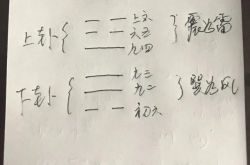 上卦{ 上六 }震为雷
六五
九四
下卦{ 九三 }巽为风
九二
初六